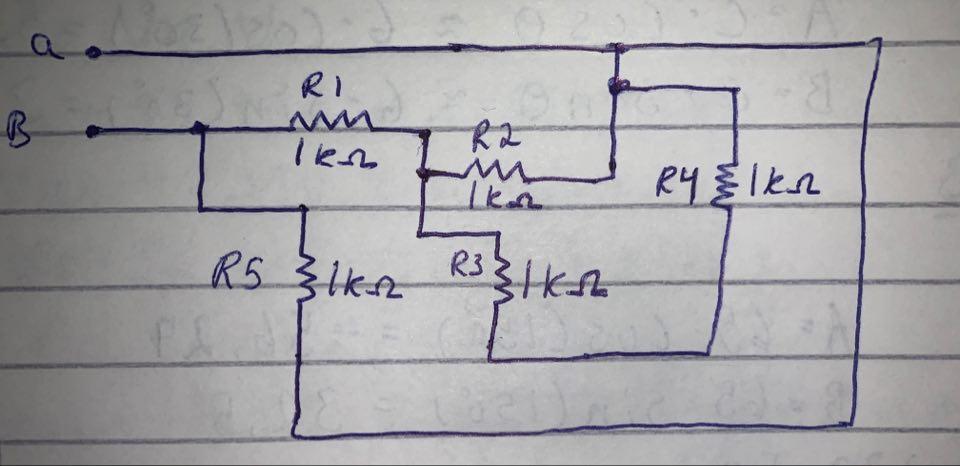 a
R1
B
1kΩ
R2
1kΩ
R4 1kΩ
R5 1kΩ
R3 1kΩ